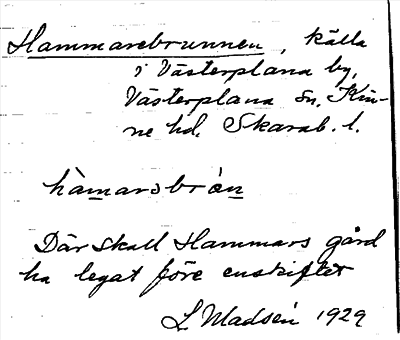 Hammarebrunnen, källa
i Västerplana by,
Västerplana sn, Kin-
ne hd, Skarab. l.
hàmarsbrón
Där skall Hammars gård
ha legat före enskiftet
L Madsén 1929